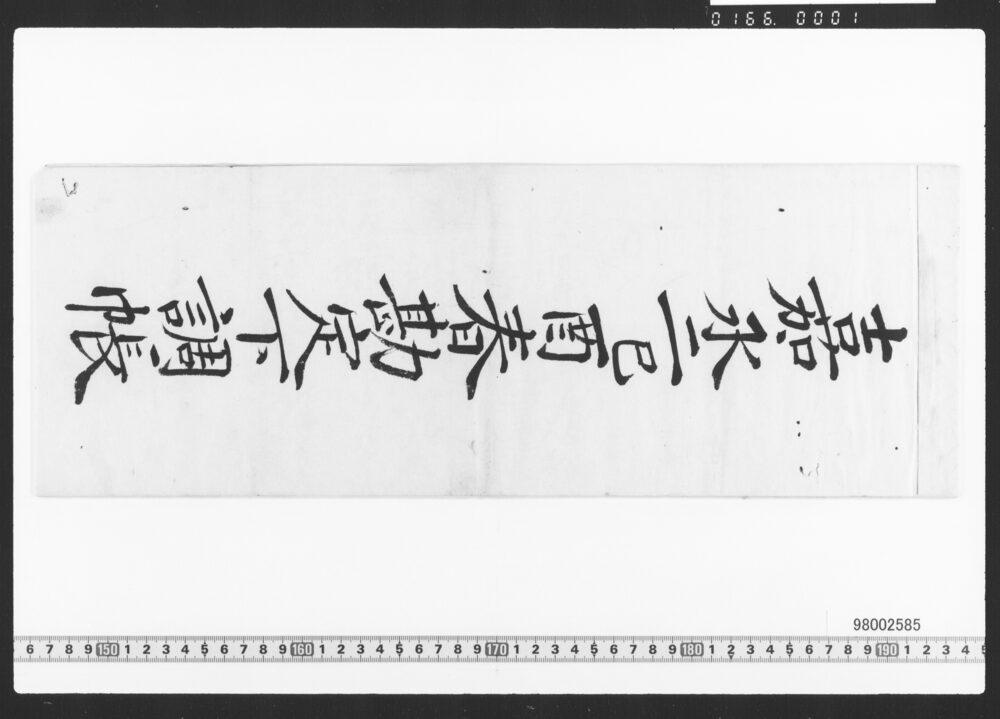 0166. 0001
嘉永二己酉春勘定下調帳
98002585
6 7 8 9 150 1 2 3 4 5 6 7 8 9 160 1 2 3 4 5 6 7 8 9 170 1 2 3 4 5 6 7 8 9 180 1 2 3 4 5 6 7 8 9 190 1 2 3 4